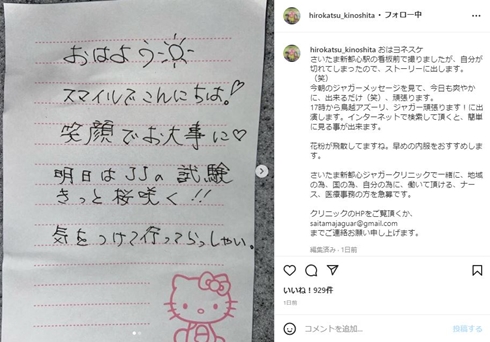 おはよう
スマイルでこんにちは。
笑顔でお大事に
明日はJJの試験
きっと桜咲く!!
気をつけて行ってらっしゃい。
hirokatsu_kinoshita • フォロー中
hirokatsu_kinoshita おはヨネスケ
さいたま新都心駅の看板前で撮りましたが、自分が
切れてしまったので、ストーリーに出します。
(笑)
今朝のジャガーメッセージを見て、今日も爽やか
に、出来るだけ(笑)、頑張ります。
17時から鳥越アズーリ、ジャガー頑張ります!に出
演します。インターネットで検索して頂くと、簡単
に見る事が出来ます。
花粉が飛散してますね。早めの内服をおすすめしま
す。
さいたま新都心ジャガークリニックで一緒に、地域
の為、国の為、自分の為に、働いて頂ける、ナー
ス、医療事務の方を急募です。
クリニックのHPをご覧頂くか、
saitamajaguar@gmail.com
までご連絡お願い申し上げます。
編集済み・1日前
いいね!929件
1日前
コメントを追加...
投稿する